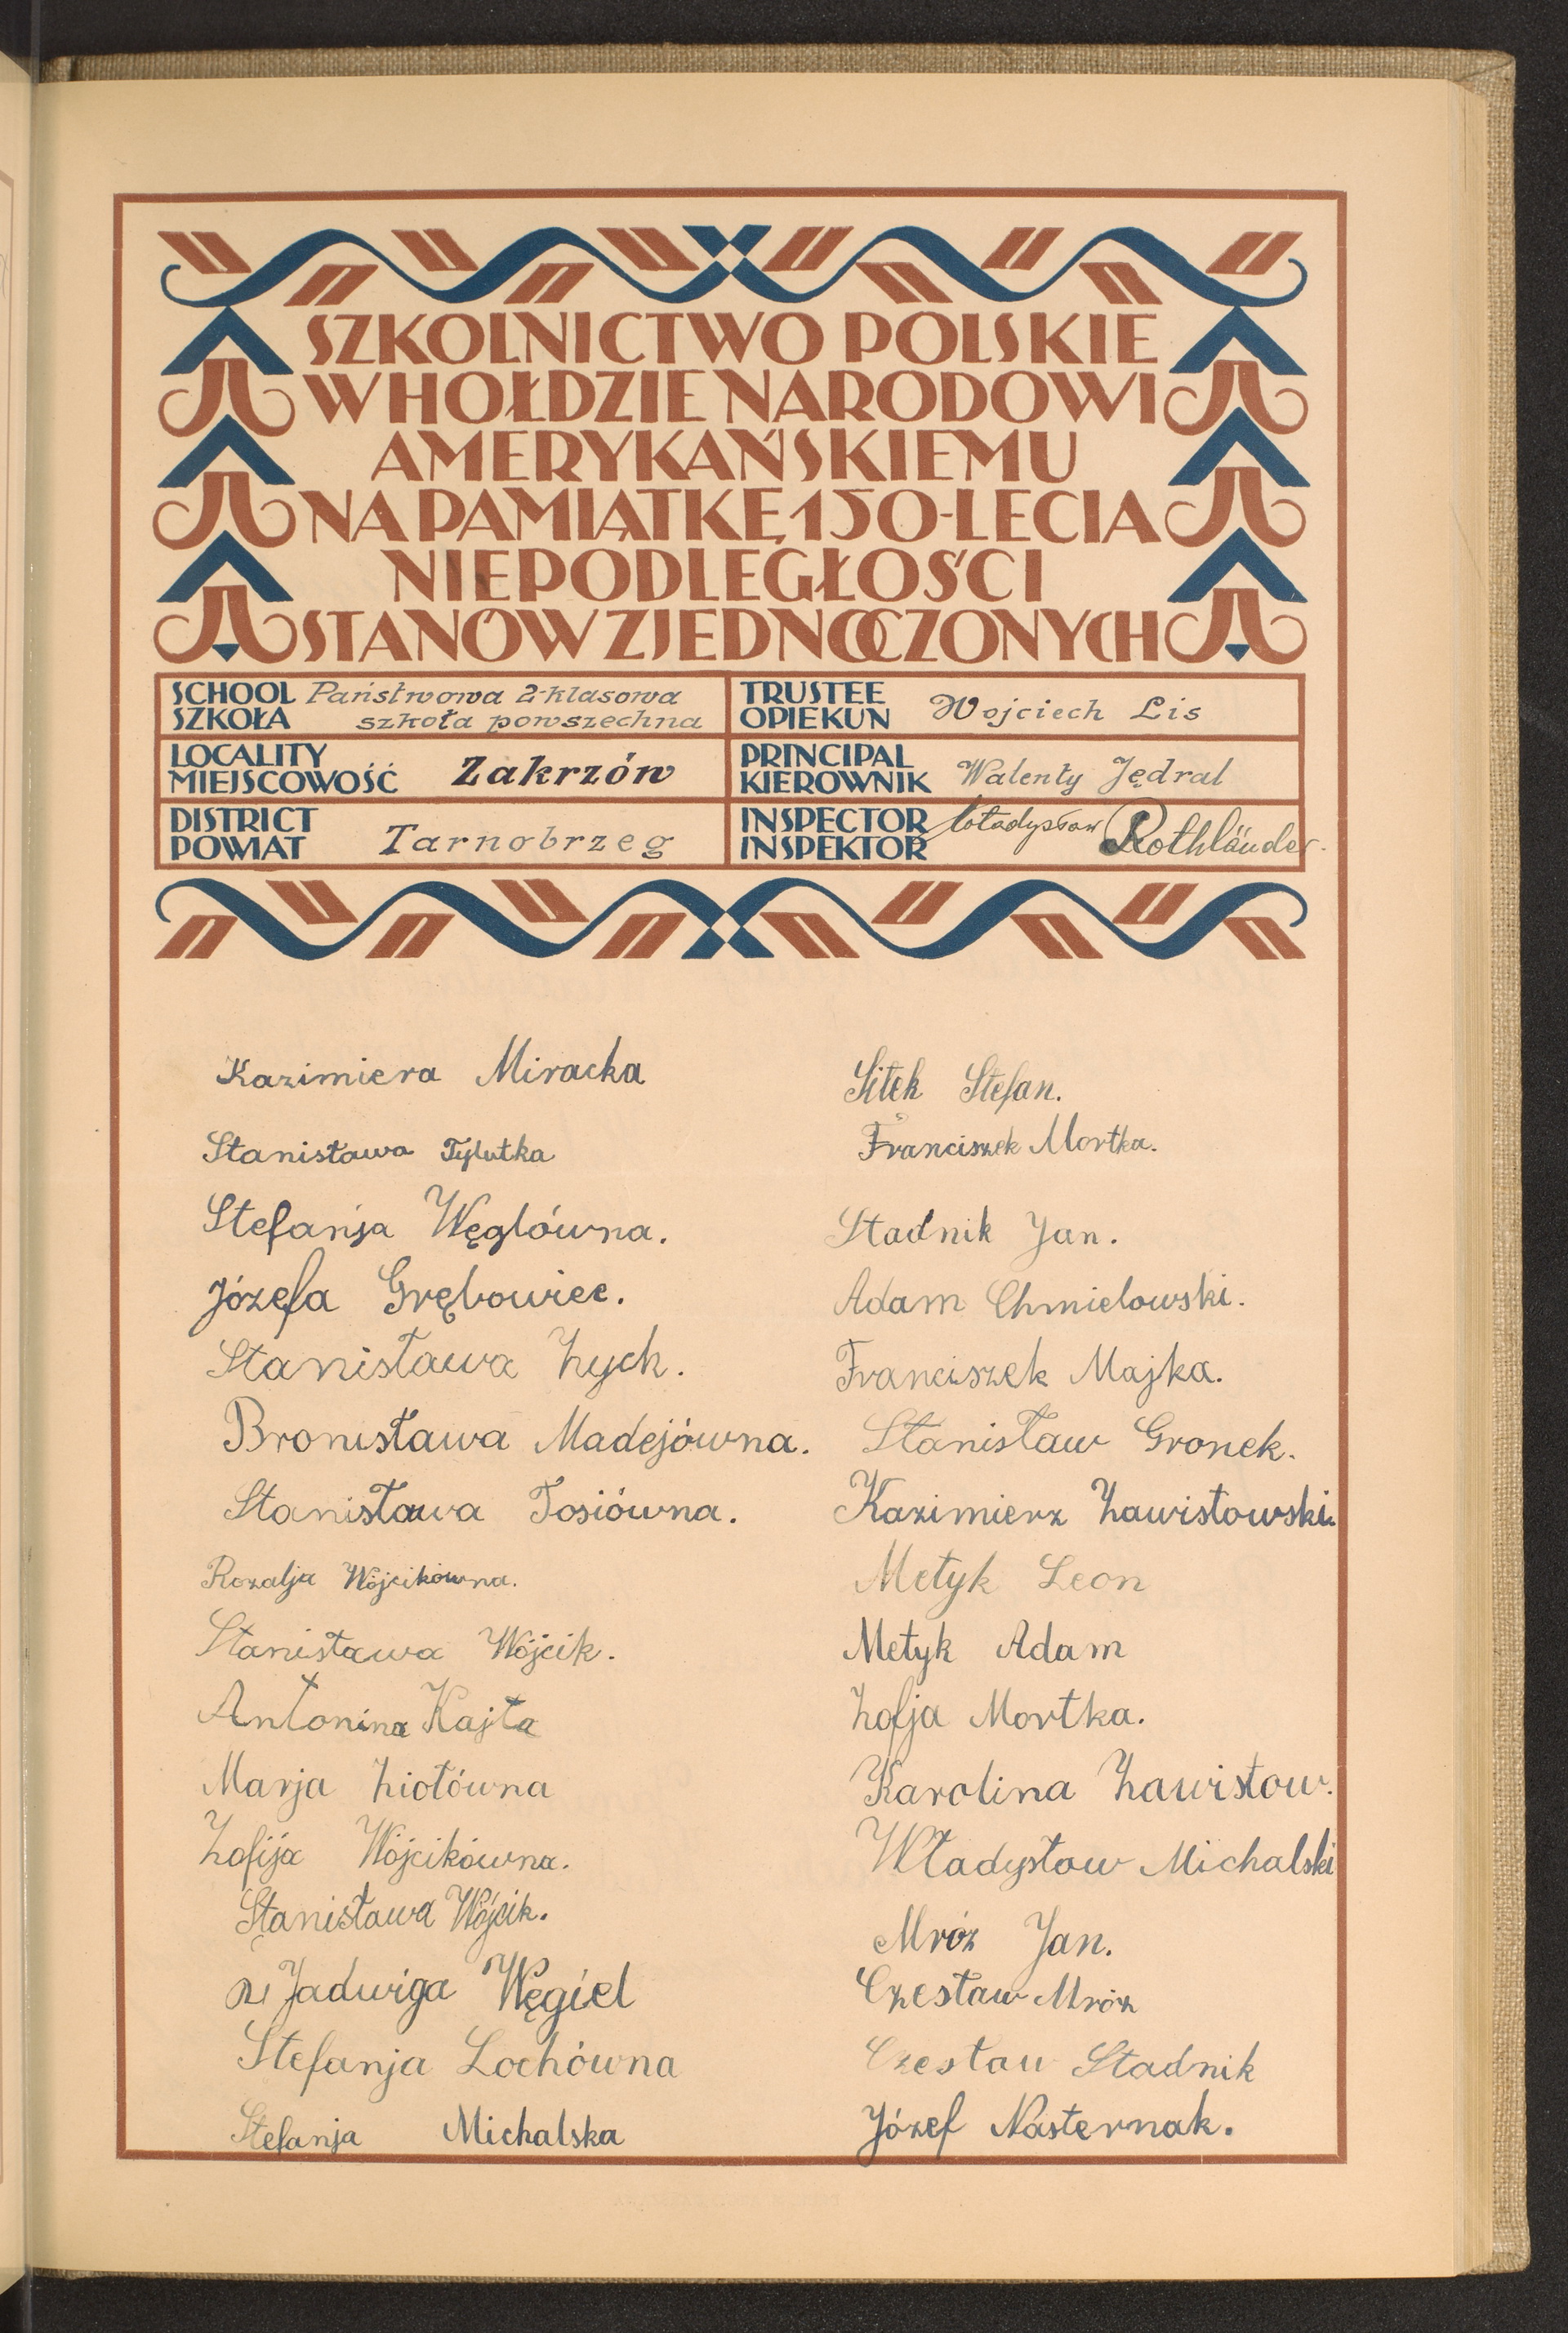 SZKOLNICTWO POLSKIE
W HOŁDZIE NARODOWI
AMERYKAŃSKIEMU
NA PAMIĄTKĘ 150-LECIA
NIEPODLEGŁOŚCI
STANÓW ZJEDNOCZONYCH
SCHOOL
SZKOŁA
Państwowa 2-klasowa
szkoła powszechna
TRUSTEE
OPIEKUN
Wojciech Lis
LOCALITY
MIEJSCOWOŚĆ
Zakrzów
PRINCIPAL
KIEROWNIK
Walenty Jędral
DISTRICT
POWIAT
Tarnobrzeg
INSPECTOR
INSPEKTOR
Władysław Rothländer.
Kazimiera Miracka
Stanisława Tylutka
Stefanja Węglówna.
Józefa Grębowiec.
Stanisława Zych.
Bronisława Madejówna.
Stanisława Tosiówna.
Rozalja Wójcikówna.
Stanisława Wójcik.
Antonina Kajta
Marja Ziołówna
Zofija Wójcikówna.
Stanisława Wójcik.
Jadwiga Węgiel
Stefanja Lochówna
Stefanja Michalska
Sitek Stefan.
Franciszek Mortka.
Stadnik Jan.
Adam Chmielowski.
Franciszek Majka.
Stanisław Gronek.
Kazimierz Zawistowski.
Metyk Leon
Metyk Adam
Zofja Mortka.
Karolina Zawistow.
Władysław Michalski
Mróz Jan.
Czesław Mróz
Czesław Stadnik
Józef Nasternak.